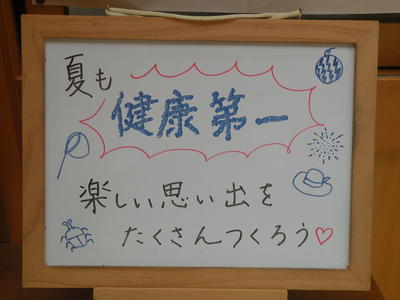 夏も
健康第一
楽しい思い出を
たくさんつくろう♡